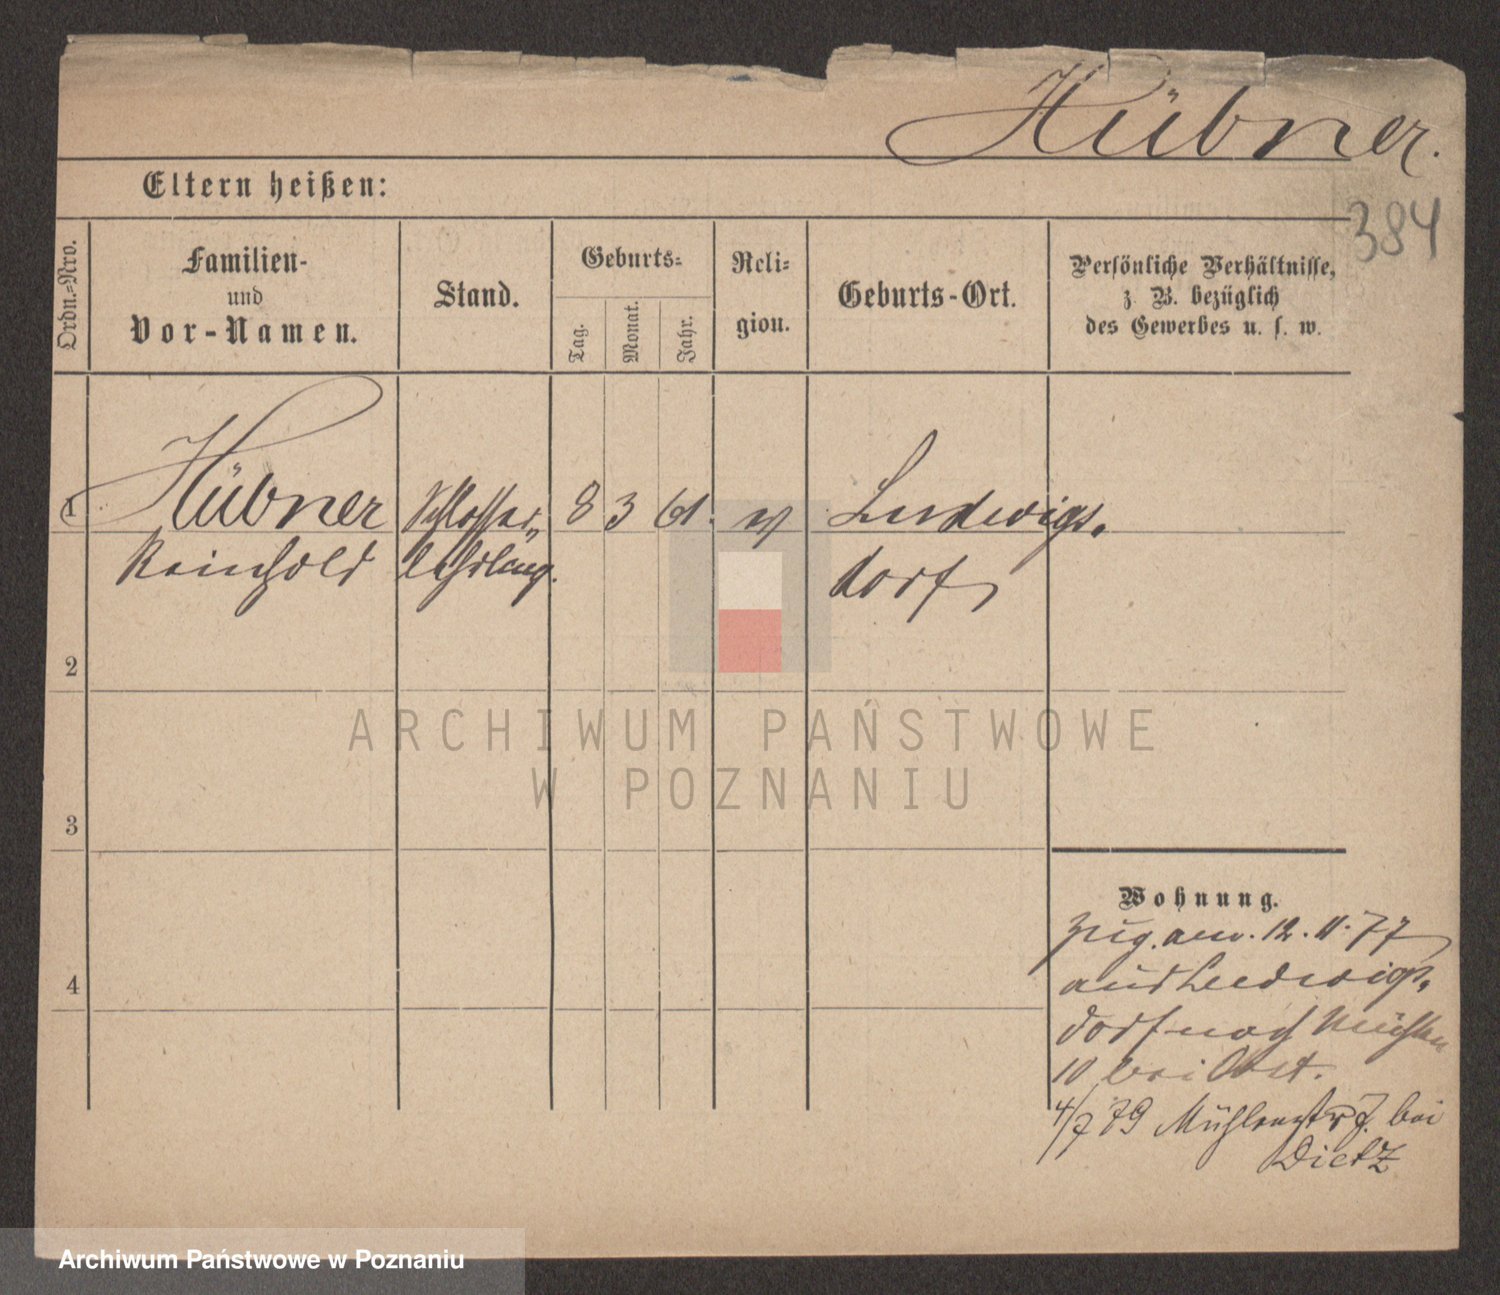 Hübner.
384
Eltern heißen:
Ordn.-Nro.
Familien-
und
Vor-Namen.
Stand.
Geburts-
Tag.
Monat.
Jahr.
Reli-
gion.
Geburts-Ort.
Persönliche Verhältnisse,
z. B. bezüglich
des Gewerbes u. s. w.
1 Hübner Schlosser- 8 3 61. Ludwigs-
Reinhold lehrling. dorf
2
3
4
Wohnung.
zug. am. 12. 11. 77
aus Ludwigs-
dorf nach
10 bei
4/7 79 Mühlenstr 7. bei
Dietz
ARCHIWUM PAŃSTWOWE
W POZNANIU
Archiwum Państwowe w Poznaniu